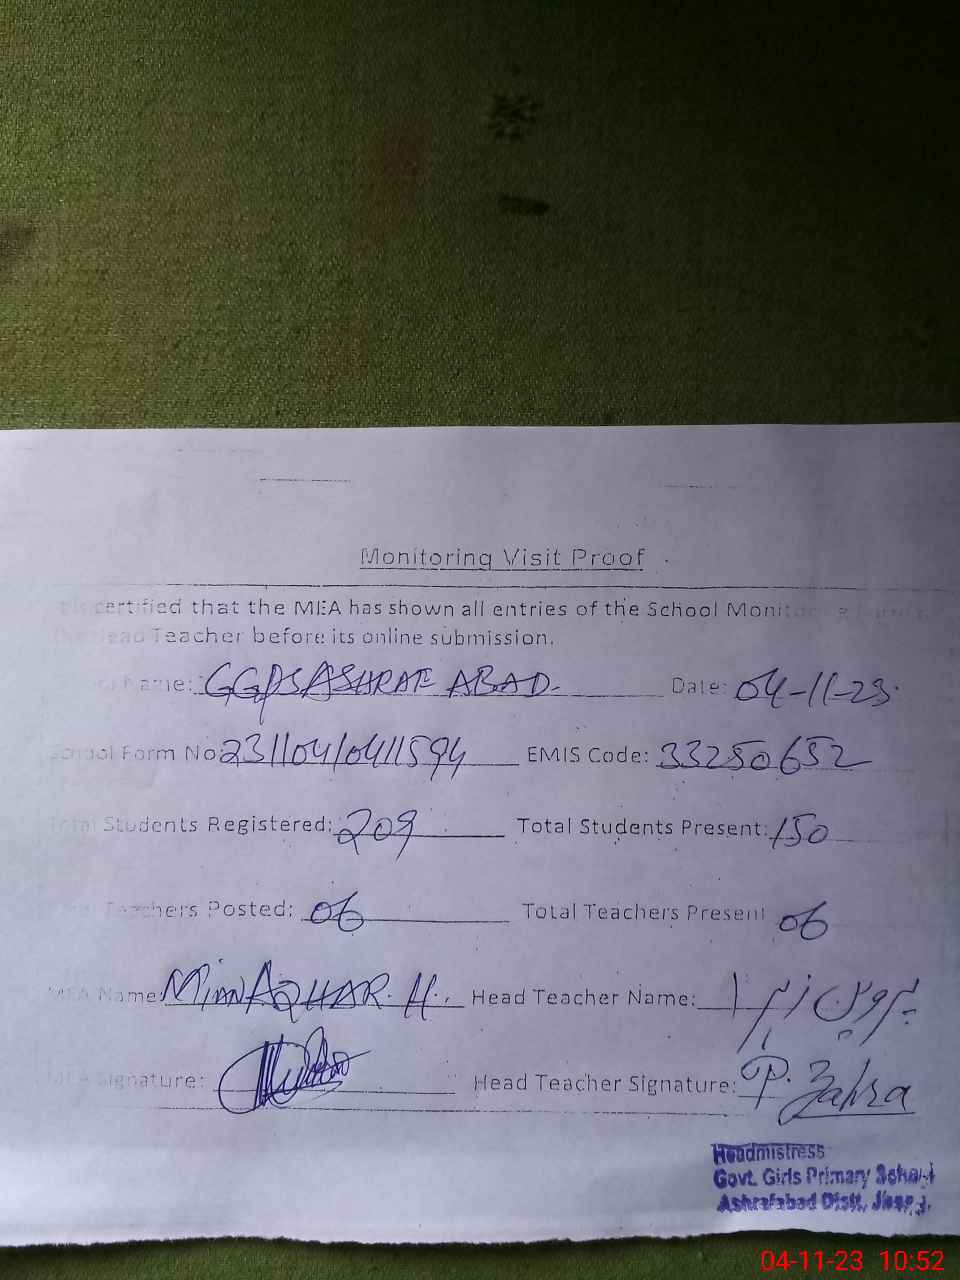 Monitoring Visit Proof
certified that the MEA has shown all entries of the School
Head Teacher before its online submission.
Name: GGPS ASHRAF ABAD. Date: 04-11-23.
School Form No: 23110410411594 EMIS Code: 33250652
Total Students Registered: 209 Total Students Present: 150
Teachers Posted: 06 Total Teachers Present 06
MEA Name: MIAN AZHAR. H. Head Teacher Name: پروین زہرا
MEA Signature: Head Teacher Signature: P. Zahra
Headmistress
Govt. Girls Primary School
Ashrafabad Distt.
04-11-23 10:52